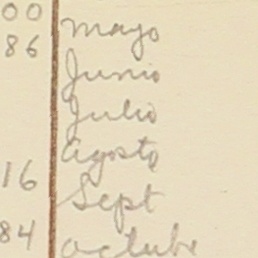 00 Mayo
86 Junio
Julio
Agosto
16 Sept
84 Octubre